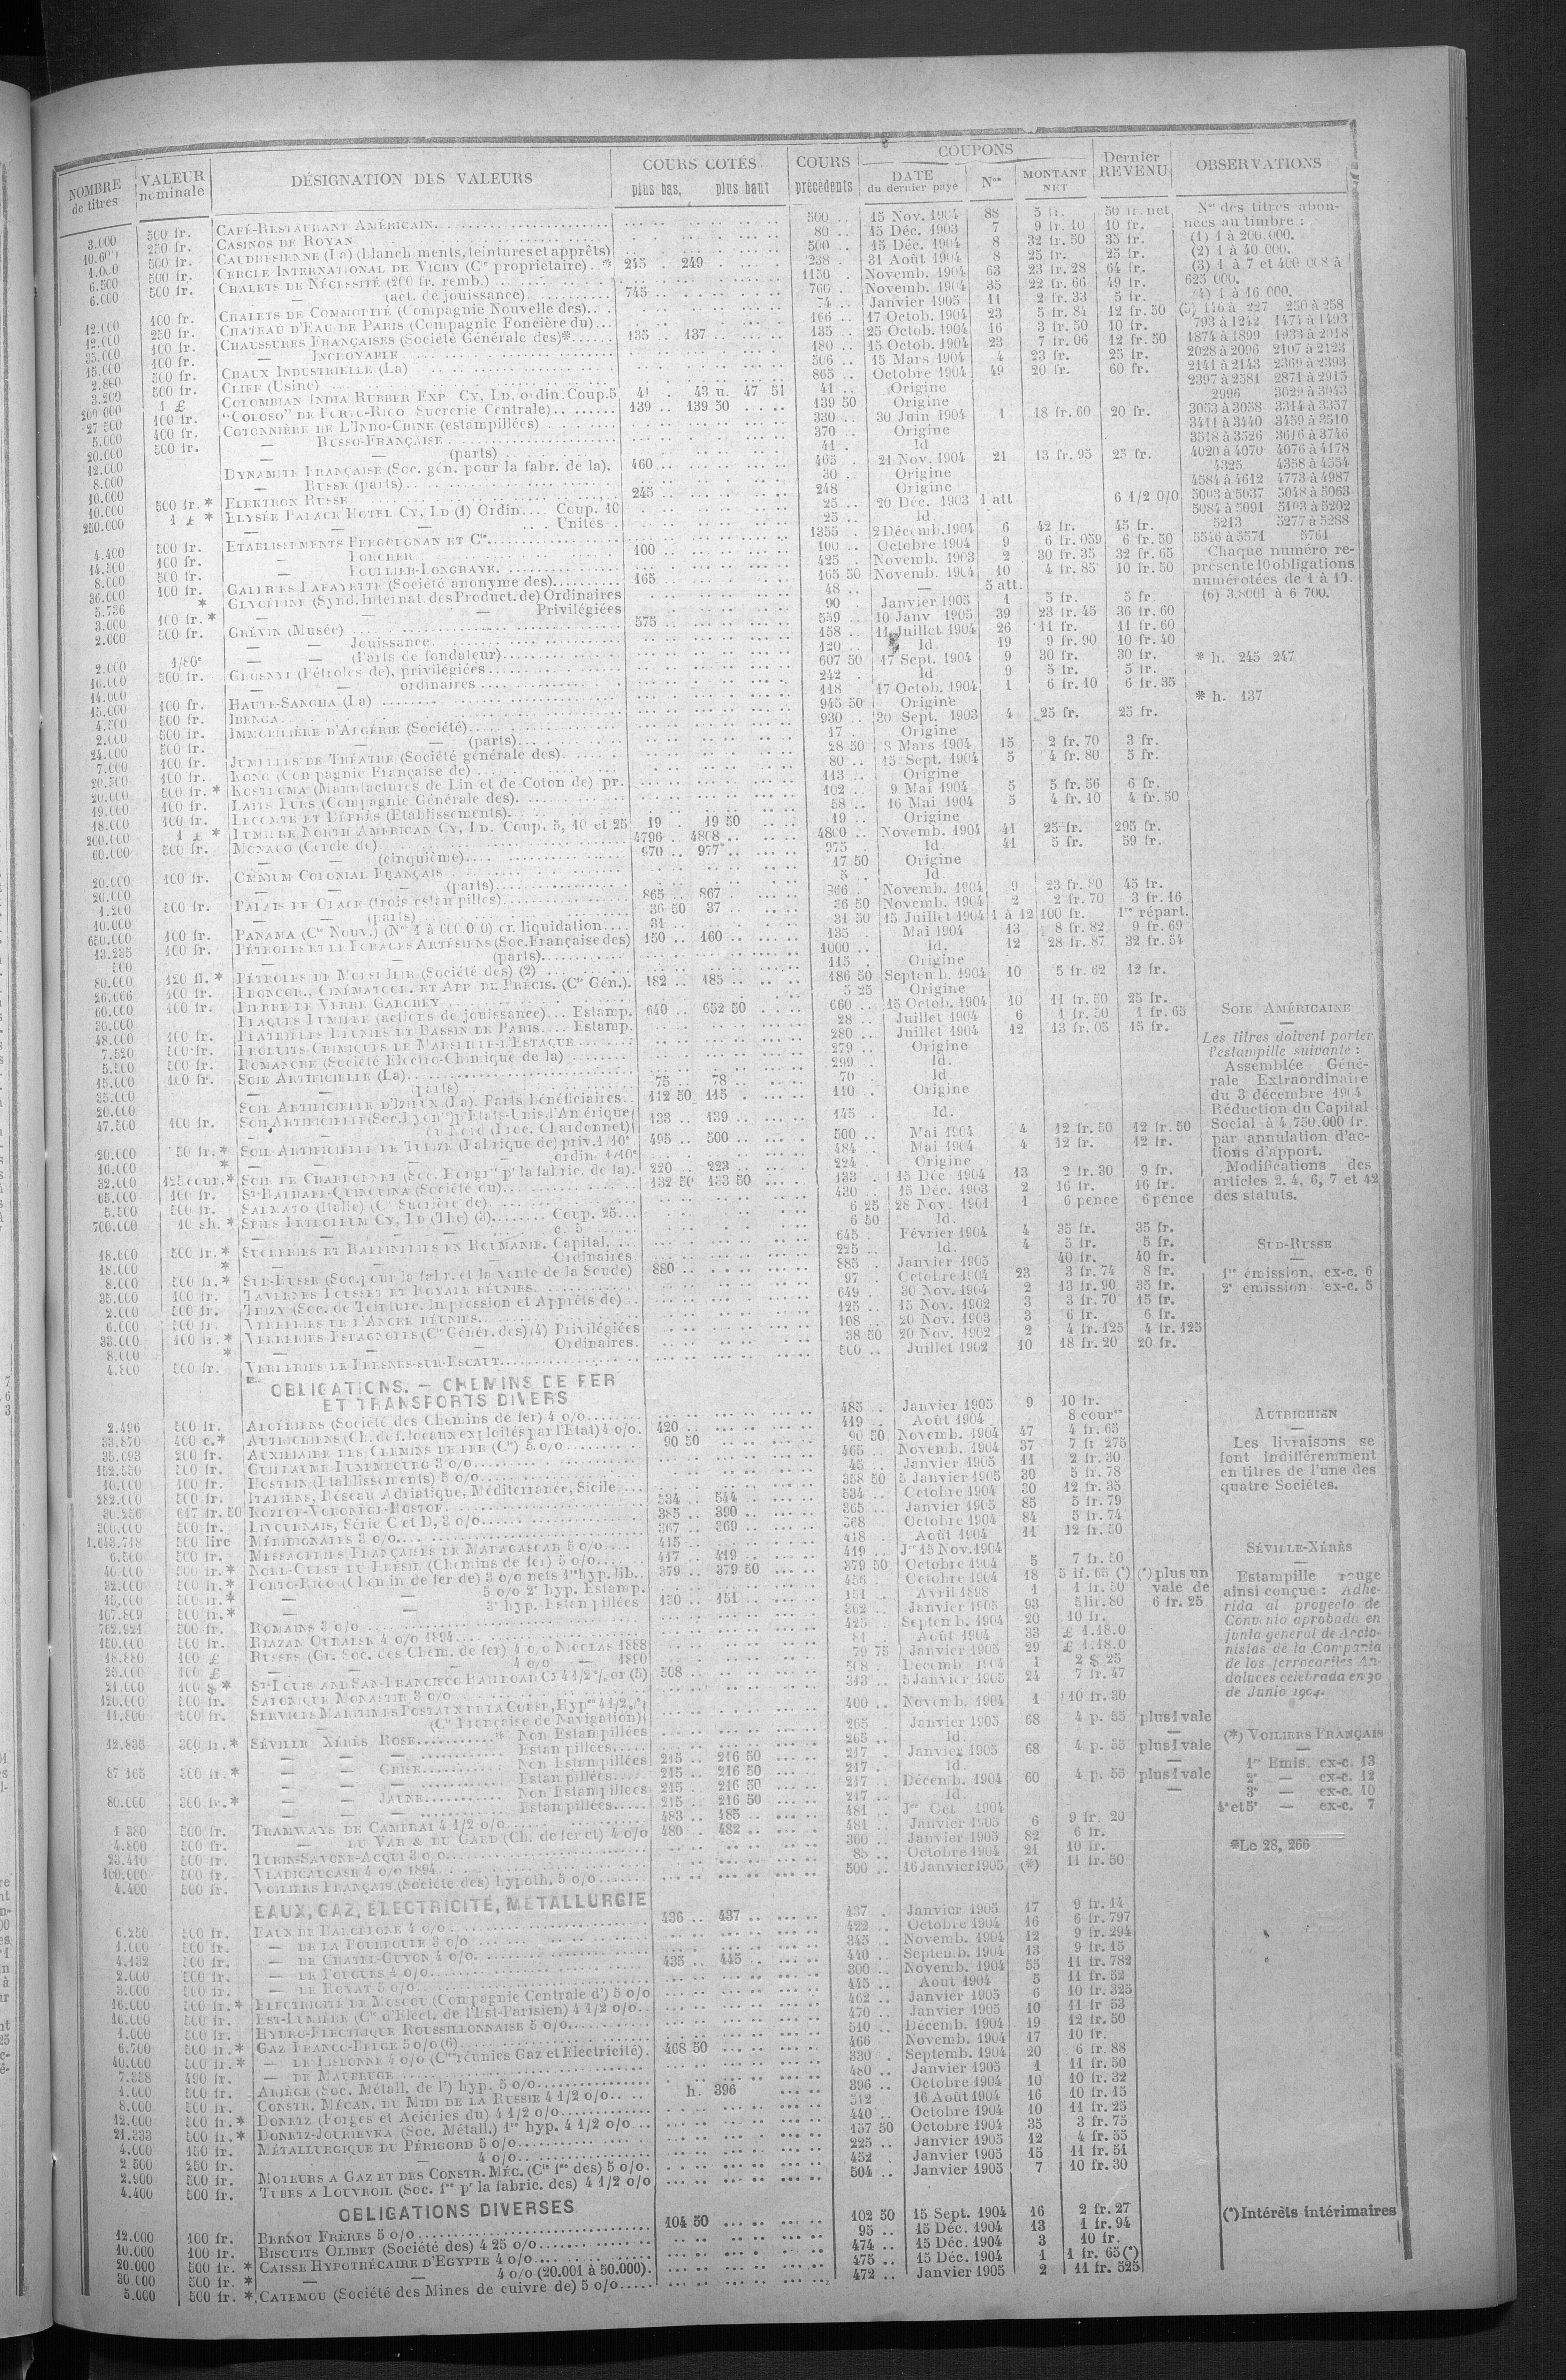 NOMBRE de titres | VALEUR nominale | DÉSIGNATION DES VALEURS | COURS COTÉS plus bas, plus haut | COURS précédents | COUPONS DATE du dernier payé | Nos | MONTANT NET | Dernier REVENU | OBSERVATIONS
3.000 500 fr. CAFÉ-RESTAURANT AMÉRICAIN 500 .. 15 Nov. 1904 88 5 fr. 50 fr. net
250 fr. CASINOS DE ROYAN 80 .. 15 Déc. 1903 7 9 fr. 10 10 fr.
500 fr. CAUDRÉSIENNE (La) (blanchiments, teintures et apprêts) 500 .. 15 Déc. 1904 8 32 fr. 50 35 fr.
6.500 500 fr. CERCLE INTERNATIONAL DE VICHY (Cie propriétaire) * 245 . 249 238 . 31 Août 1904 8 25 fr. 25 fr.
6.000 500 fr. CHALETS DE NÉCESSITÉ (200 fr. remb.) 1150 Novemb. 1904 63 23 fr. 28 64 fr.
— (act. de jouissance) 745 766 Novemb. 1904 35 22 fr. 66 49 fr.
12.000 100 fr. CHALETS DE COMMODITÉ (Compagnie Nouvelle des) 74 .. Janvier 1905 11 2 fr. 33 5 fr.
12.000 250 fr. CHATEAU D'EAU DE PARIS (Compagnie Foncière du) 166 .. 17 Octob. 1904 23 5 fr. 84 12 fr. 50
35.000 100 fr. CHAUSSURES FRANÇAISES (Société Générale des)* 135 .. 137 135 .. 25 Octob. 1904 16 3 fr. 50 10 fr.
15.000 100 fr. — INCROYABLE 180 .. 15 Octob. 1904 23 7 fr. 06 12 fr. 50
2.860 500 fr. CHAUX INDUSTRIELLE (La) 506 .. 15 Mars 1904 4 23 fr. 25 fr.
3.200 500 fr. CLIFF (Usine) 865 .. Octobre 1904 49 20 fr. 60 fr.
200 000 1 £ COLOMBIAN INDIA RUBBER EXP CY, LD. ordin. Coup. 5 41 . 43 u. 47 51 41 .. Origine
27 500 100 fr. "COLOSO" DE PORTO-RICO Sucrerie Centrale) 139 .. 139 50 139 50 Origine
5.000 400 fr. COTONNIÈRE DE L'INDO-CHINE (estampillées) 330 .. 30 Juin 1904 1 18 fr. 60 20 fr.
20.000 500 fr. — RUSSO-FRANÇAISE 370 .. Origine
12.000 — — (parts) 41 . Id
8.000 DYNAMITE FRANÇAISE (Soc. gén. pour la fabr. de la). 460 465 . 21 Nov. 1904 21 13 fr. 95 25 fr.
10.000 — RUSSE (parts) 30 .. Origine
10.000 500 fr. * ELEKTRON RUSSE 245 248 Origine
250.000 1 £ * ELYSÉE PALACE HOTEL CY, LD (1) Ordin. Coup. 10 25 .. 20 Déc. 1903 1 att 6 1/2 0/0
— — Unités . 25 .. Id.
4.400 500 fr. ETABLISSEMENTS BERGOUGNAN ET Cie 1355 . 2 Décemb. 1904 6 42 fr. 45 fr.
14.500 100 fr. — FORCHER 100 100 .. Octobre 1904 9 6 fr. 059 6 fr. 50
8.000 500 fr. — FOULLIER-LONGHAYE 425 . Novemb. 1903 2 30 fr. 35 32 fr. 65
36.000 100 fr. GALERIES LAFAYETTE (Société anonyme des) 165 165 50 Novemb. 1904 10 4 fr. 85 10 fr. 50
5.736 * GLYCÉRINE (Synd. Internat. des Product. de) Ordinaires 48 .. — 5 att.
3.600 100 fr. * — — Privilégiées 90 . Janvier 1905 1 5 fr. 5 fr.
2.000 500 fr. GRÉVIN (Musée) 575 559 .. 10 Janv 1905 39 23 fr. 45 36 fr. 60
— — Jouissance 158 .. 11 Juillet 1904 26 11 fr. 11 fr. 60
2.000 1/80e — — (Parts de fondateur) 120 .. Id. 19 9 fr. 90 10 fr. 40
16.000 500 fr. GROSNYI (Pétroles de), privilégiées 607 50 17 Sept. 1904 9 30 fr. 30 fr.
14.000 — ordinaires 242 . Id 9 5 fr. 5 fr.
15.000 100 fr. HAUTE-SANGHA (La) 118 17 Octob. 1904 1 6 fr. 10 6 fr. 35
4.500 500 fr. IBENGA 945 50 Origine
2.000 500 fr. IMMOBILIÈRE D'ALGÉRIE (Société) 930 .. 30 Sept. 1903 4 25 fr. 25 fr.
24.000 500 fr. — — (parts) 17 . Origine
7.000 100 fr. JUMELLES DE THÉATRE (Société générale des) 28 50 8 Mars 1904 15 2 fr. 70 3 fr.
20.500 100 fr. KONG (Compagnie Française de) 80 .. 15 Sept. 1904 5 4 fr. 80 5 fr.
20.000 500 fr. * KOSTROMA (Manufactures de Lin et de Coton de) pr. 113 .. Origine
19.000 100 fr. LAITS PURS (Compagnie Générale des) 102 .. 9 Mai 1904 5 5 fr. 56 6 fr.
18.000 100 fr. LECOMTE ET LÉPRÉS (Etablissements) 58 .. 16 Mai 1904 5 4 fr. 10 4 fr. 50
200.000 1 £ * LUMIÈRE NORTH AMERICAN CY, LD. Coup. 5, 10 et 25 19 . 19 50 19 .. Origine
60.000 500 fr. MONACO (Cercle de) 4796 . 4808 4800 .. Novemb. 1904 41 25 fr. 295 fr.
— — (cinquième) 970 .. 977 975 . Id. 41 5 fr. 59 fr.
20.000 100 fr. OMNIUM COLONIAL FRANÇAIS 17 50 Origine
20.000 — — (parts) 5 . Id.
1.200 500 fr. PALAIS DE GLACE (trois estampilles) 865 .. 867 866 .. Novemb. 1904 9 23 fr. 80 45 fr.
10.000 — — (parts) 36 50 37 36 50 Novemb. 1904 2 2 fr. 70 3 fr. 16
650.000 100 fr. PANAMA (Cie Nouv.) (Nos 1 à 600.000) en liquidation 31 31 50 15 Juillet 1904 1 à 12 100 fr. 1re répart.
13.235 100 fr. PÉTROLES ET LE FORAGES ARTÉSIENS (Soc. Française des) 150 .. 160 135 . Mai 1904 13 8 fr. 82 9 fr. 69
500 — — (parts) 1000 .. Id. 12 28 fr. 87 32 fr. 54
80.000 120 fl. * PÉTROLES DE MOESI ILIR (Société des) (2) 115 . Origine
26.666 100 fr. PHONOGR., CINÉMATOGR. ET APP. DE PRÉCIS. (Cie Gén.) 182 .. 185 186 50 Septemb. 1904 10 5 fr. 62 12 fr.
60.000 100 fr. PIERRE DE VERRE GARCHEY 5 25 Origine
30.000 PLAQUES LUMIÈRE (actions de jouissance) Estamp. 640 .. 652 50 660 .. 15 Octob. 1904 10 11 fr. 50 25 fr.
48.000 100 fr. PLATRIÈRES RÉUNIES ET BASSIN DE PARIS Estamp. 28 .. Juillet 1904 6 1 fr. 50 1 fr. 65
7.520 500 fr. PRODUITS CHIMIQUES DE MARSEILLE-L'ESTAQUE 280 .. Juillet 1904 12 13 fr. 05 15 fr.
5.500 500 fr. ROMANCHE (Société Electro-Chimique de la) 279 .. Origine
15.000 100 fr. SOIE ARTIFICIELLE (La) 75 .. 78 299 . Id.
35.000 — — (parts) 70 . Id
20.000 SOIE ARTIFICIELLE D'IZIEUX (La). Parts bénéficiaires 112 50 115 110 . Origine
47.500 100 fr. SOIE ARTIFICIELLE (Soc. Lyonn.) p. Etats-Unis d'Amérique du Nord (Proc. Chardonnet) 133 . 139 145 . Id.
20.000 50 fr. * SOIE ARTIFICIELLE DE TUBIZE (Fabrique de) priv. 1/10e 495 .. 500 500 .. Mai 1904 4 12 fr. 50 12 fr. 50
16.000 * — — ordin. 1/10e 484 .. Mai 1904 4 12 fr. 12 fr.
32.000 125 cour. * SOIE DE CHARDONNET (Soc. Hongr. pr la fabric. de la) 220 .. 223 224 . Origine
65.000 100 fr. ST-RAPHAEL-QUINQUINA (Société du) 132 50 133 50 133 . 15 Déc 1904 13 2 fr. 30 9 fr.
5.500 500 fr. SALMATO (Italie) (Cie Sucrière de) 430 .. 15 Déc. 1903 2 16 fr. 16 fr.
700.000 10 sh. * SPIES PETROLEUM CY, LD (The) (3) Coup. 25 6 25 28 Nov. 1901 1 6 pence 6 pence
— — c. 5 6 50 Id.
18.600 500 fr. * SUCRERIES ET RAFFINERIES EN ROUMANIE. Capital 645 . Février 1904 4 35 fr. 35 fr.
18.000 * — — Ordinaires 225 .. Id. 4 5 fr. 5 fr.
8.000 500 fr. * SUD-RUSSE (Soc. pour la fabr. et la vente de la Soude) 880 885 . Janvier 1905 40 fr. 40 fr.
35.000 100 fr. TAVERNES POUSSET ET ROYALE RÉUNIES 97 . Octobre 1904 23 3 fr. 74 8 fr.
2.000 500 fr. THIZY (Soc. de Teinture, Impression et Apprêts de) 649 . 30 Nov. 1904 2 13 fr. 90 35 fr.
6.000 500 fr. VERRERIES DE L'ANCRE RÉUNIES 125 .. 15 Nov. 1902 3 3 fr. 70 15 fr.
33.000 100 fr. * VERRERIES ESPAGNOLES (Cie Génér. des) (4) Privilégiées 108 .. 20 Nov. 1903 3 6 fr. 6 fr.
8.000 * — — Ordinaires. 38 50 20 Nov. 1902 2 4 fr. 125 4 fr. 125
4.800 500 fr. VERRERIES DE FRESNES-SUR-ESCAUT 500 .. Juillet 1902 10 18 fr. 20 20 fr.
OBLIGATIONS. — CHEMINS DE FER
ET TRANSPORTS DIVERS
2.496 500 fr. ALGÉRIENS (Société des Chemins de fer) 4 0/0 485 .. Janvier 1905 9 10 fr.
33.870 400 c. * AUTRICHIENS (Ch. de f. locaux exploités par l'Etat) 4 0/0. 420 419 .. Août 1904 8 cournes
35.693 200 fr. AUXILIAIRE DES CHEMINS DE FER (Cie) 5 0/0 90 50 90 50 Novemb. 1904 47 4 fr. 65
152.550 500 fr. GUILLAUME LUXEMBOURG 3 0/0 465 .. Novemb. 1904 37 7 fr 275
10.000 100 fr. HOSTEIN (Etablissements) 5 0/0 45 .. Janvier 1905 11 2 fr. 30
282.000 500 fr. ITALIENS, Réseau Adriatique, Méditerranée, Sicile 358 50 5 Janvier 1905 30 5 fr. 78
30.256 617 fr. 50 KOZLOF-VORONÈGE-ROSTOF 534 .. 544 534 .. Octobre 1904 30 12 fr. 35
300.000 500 fr. LIVOURNAIS, Série C et D, 3 0/0 385 .. 390 365 .. Janvier 1905 85 5 fr. 79
1.643.718 500 lire MÉRIDIONALES 3 0/0 367 .. 369 368 Octobre 1904 84 5 fr. 74
6.500 500 fr. MESSAGERIES FRANÇAISES DE MADAGASCAR 5 0/0 415 418 . Août 1904 11 12 fr. 50
40.000 500 fr. * NORD-OUEST DU BRÉSIL (Chemins de fer) 5 0/0 417 .. 419 419 .. Jce 15 Nov. 1904
32.000 500 fr. * PORTO-RICO (Chemin de fer de) 3 0/0 nets 1re hyp. lib. 379 .. 379 50 379 50 Octobre 1904 5 7 fr. 50
15.000 500 fr. * — 5 0/0 2e hyp. Estamp. Octobre 1904 18 5 fr. 65 (*) (*) plus un
107.809 500 fr. * — 3e hyp. Estampillées 150 .. 151 151 . Avril 1898 1 1 fr. 50 vale de
762.921 500 fr. ROMAINS 3 0/0 362 .. Janvier 1905 93 5 lir. 80 6 fr. 25
150.000 500 fr. RIAZAN OURALSK 4 0/0 1894 425 .. Septemb. 1904 20 10 fr.
18.880 100 £ RUSSES (Gr. Soc. des Chem. de fer) 4 0/0 NICOLAS 1888 81 . Août 1904 33 £ 1.18.0
25.000 100 £ — — 4 0/0 — 1890 79 75 Janvier 1905 29 £ 1.18.0
21.000 100 $ * ST-LOUIS AND SAN-FRANCISCO RAILROAD CY 4 1/2 % or (5) 508 508 . Décemb. 1904 1 2 $ 25
120.000 500 fr. SALONIQUE MONASTIR 3 0/0 313 .. 5 Janvier 1905 24 7 fr. 47
11.800 500 fr. SERVICES MARITIMES POSTAUX DE LA CORSE, Hypre 4 1/2 % (Cie Française de Navigation) 400 .. Novemb. 1904 1 10 fr. 30
12.835 300 fr. * SÉVILLE XÉRÈS ROSE * Non Estampillées 265 Janvier 1905 68 4 p. 55 plus 1 vale
Estampillées 265 .. Id. —
87 165 300 fr. * — — GRISE Non Estampillées 215 .. 216 50 217 . Janvier 1905 68 4 p. 55 plus 1 vale
Estampillées 215 .. 216 50 217 . Id. —
80.000 300 fr. * — — JAUNE Non Estampillées 215 .. 216 50 217 .. Décemb. 1904 60 4 p. 55 plus 1 vale
Estampillées 215 .. 216 50 217 .. Id. —
1 380 500 fr. TRAMWAYS DE CAMBRAI 4 1/2 0/0 483 .. 485 481 . Jce Oct 1904
4.800 500 fr. — DU VAR & DU GARD (Ch. de fer et) 4 0/0 480 .. 482 481 .. Janvier 1905 6 9 fr. 20
23.410 500 fr. TURIN-SAVONE-ACQUI 3 0/0 360 .. Janvier 1905 82 6 fr.
100.000 500 fr. VLADICAUCASE 4 0/0 1894 85 .. Octobre 1904 21 10 fr.
4.400 500 fr. VOILIERS FRANÇAIS (Société des) hypoth. 5 0/0 500 .. 16 Janvier 1905 (*) 11 fr. 50
EAUX, GAZ, ÉLECTRICITÉ, MÉTALLURGIE
6.250 500 fr. EAUX DE BARCELONE 4 0/0 436 .. 437 437 . Janvier 1905 17 9 fr. 14
1.000 500 fr. — DE LA BOURBOULE 3 0/0 422 .. Octobre 1904 16 6 fr. 797
4.132 500 fr. — DE CHATEL-GUYON 4 0/0 345 .. Novemb. 1904 12 9 fr. 294
2.000 500 fr. — DE POUGUES 4 0/0 435 .. 445 440 .. Septemb. 1904 13 9 fr. 15
3.000 500 fr. — DE ROYAT 5 0/0 300 .. Novemb. 1904 55 11 fr. 782
16.000 500 fr. * ELECTRICITÉ DE MOSCOU (Compagnie Centrale d') 5 0/0 445 .. Aout 1904 5 11 fr. 52
16.000 500 fr. EST-LUMIÈRE (Cie d'Elect. de l'Est-Parisien) 4 1/2 0/0 462 .. Janvier 1905 6 10 fr. 325
1.000 500 fr. HYDRO-ELECTRIQUE ROUSSILLONNAISE 5 0/0 470 .. Janvier 1905 10 11 fr 53
6.700 500 fr. * GAZ FRANCO-BELGE 5 0/0 (6) 510 .. Décemb. 1904 19 12 fr. 50
40.000 500 fr. * — DE LISBONNE 4 0/0 (Cies réunies Gaz et Electricité). 468 50 466 . Novemb. 1904 17 10 fr.
7.358 490 fr. — DE MAUBEUGE 330 . Septemb. 1904 20 6 fr. 88
1.000 500 fr. ARIÈGE (Soc. Métall. de l') hyp. 5 0/0 480 .. Janvier 1905 1 11 fr. 50
8.000 500 fr. CONSTR. MÉCAN. DU MIDI DE LA RUSSIE 4 1/2 0/0 h. 396 396 .. Octobre 1904 10 10 fr. 32
12.000 500 fr. * DONETZ (Forges et Aciéries du) 4 1/2 0/0 512 . 16 Août 1904 16 10 fr. 15
21.333 500 fr. * DONETZ-JOURIEVKA (Soc. Métall.) 1re hyp. 4 1/2 0/0 440 .. Octobre 1904 10 11 fr. 25
4.000 150 fr. MÉTALLURGIQUE DU PÉRIGORD 5 0/0 157 50 Octobre 1904 35 3 fr. 75
2 500 250 fr. — 4 0/0 225 .. Janvier 1905 12 4 fr. 55
2.900 500 fr. MOTEURS A GAZ ET DES CONSTR. MÉC. (Cie fse des) 5 0/0. 452 . Janvier 1905 15 11 fr. 51
4.400 500 fr. TUBES A LOUVROIL (Soc. fse pr la fabric. des) 4 1/2 0/0 504 .. Janvier 1905 7 10 fr. 30
OBLIGATIONS DIVERSES
12.000 100 fr. BERNOT FRÈRES 5 0/0 104 50 102 50 15 Sept. 1904 16 2 fr. 27
10.000 100 fr. BISCUITS OLIBET (Société des) 4 25 0/0 95 .. 15 Déc. 1904 13 1 fr. 94
20.000 500 fr. * CAISSE HYPOTHÉCAIRE D'EGYPTE 4 0/0 474 .. 15 Déc. 1904 3 10 fr.
30.000 500 fr. * — — 4 0/0 (20.001 à 50.000). 475 .. 15 Déc. 1904 1 1 fr. 65 (*)
5.000 500 fr. * CATEMOU (Société des Mines de cuivre de) 5 0/0 472 .. Janvier 1905 2 11 fr. 525
Nos des titres abon-
nées au timbre :
(1) 1 à 200.000.
(2) 1 à 40 000.
(3) 1 à 7 et 400 008 à
625 000.
(4) 1 à 16 000.
(5) 116 à 227 250 à 258
793 à 1242 1474 à 1493
1874 à 1899 1933 à 2018
2028 à 2096 2107 à 2123
2141 à 2143 2369 à 2393
2397 à 2581 2871 à 2915
2996 3029 à 3043
3053 à 3058 3314 à 3357
3411 à 3440 3459 à 3510
3518 à 3526 3616 à 3746
4020 à 4070 4076 à 4178
4325 4358 à 4554
4584 à 4612 4773 à 4987
5003 à 5037 5048 à 5063
5084 à 5091 5103 à 5202
5213 5277 à 5288
5546 à 5571 5761
Chaque numéro re-
présente 10 obligations
numérotées de 1 à 10.
(6) 3.8001 à 6 700.
* h. 245 247
* h. 137
SOIE AMÉRICAINE
Les titres doivent porter
l'estampille suivante :
Assemblée Géné-
rale Extraordinaire
du 3 décembre 1904
Réduction du Capital
Social à 4.750.000 fr.
par annulation d'ac-
tions d'apport.
Modifications des
articles 2, 4, 6, 7 et 42
des statuts.
SUD-RUSSE
1re émission, ex-c. 6
2e émission ex-c. 5
AUTRICHIEN
Les livraisons se
font indifféremment
en titres de l'une des
quatre Sociétés.
SÉVILLE-XÉRÈS
Estampille rouge
ainsi conçue : Adhe-
rida al proyecto de
Convenio aprobado en
junta general de Accio-
nistas de la Compania
de los ferrocariles An-
daluces celebrada en 30
de Junio 1904.
(*) VOILIERS FRANÇAIS
1re Emis. ex-c. 13
2e — ex-c. 12
3e — ex-c. 10
4e et 5e — ex-c. 7
*Le 28, 266
(*) Intérêts intérimaires